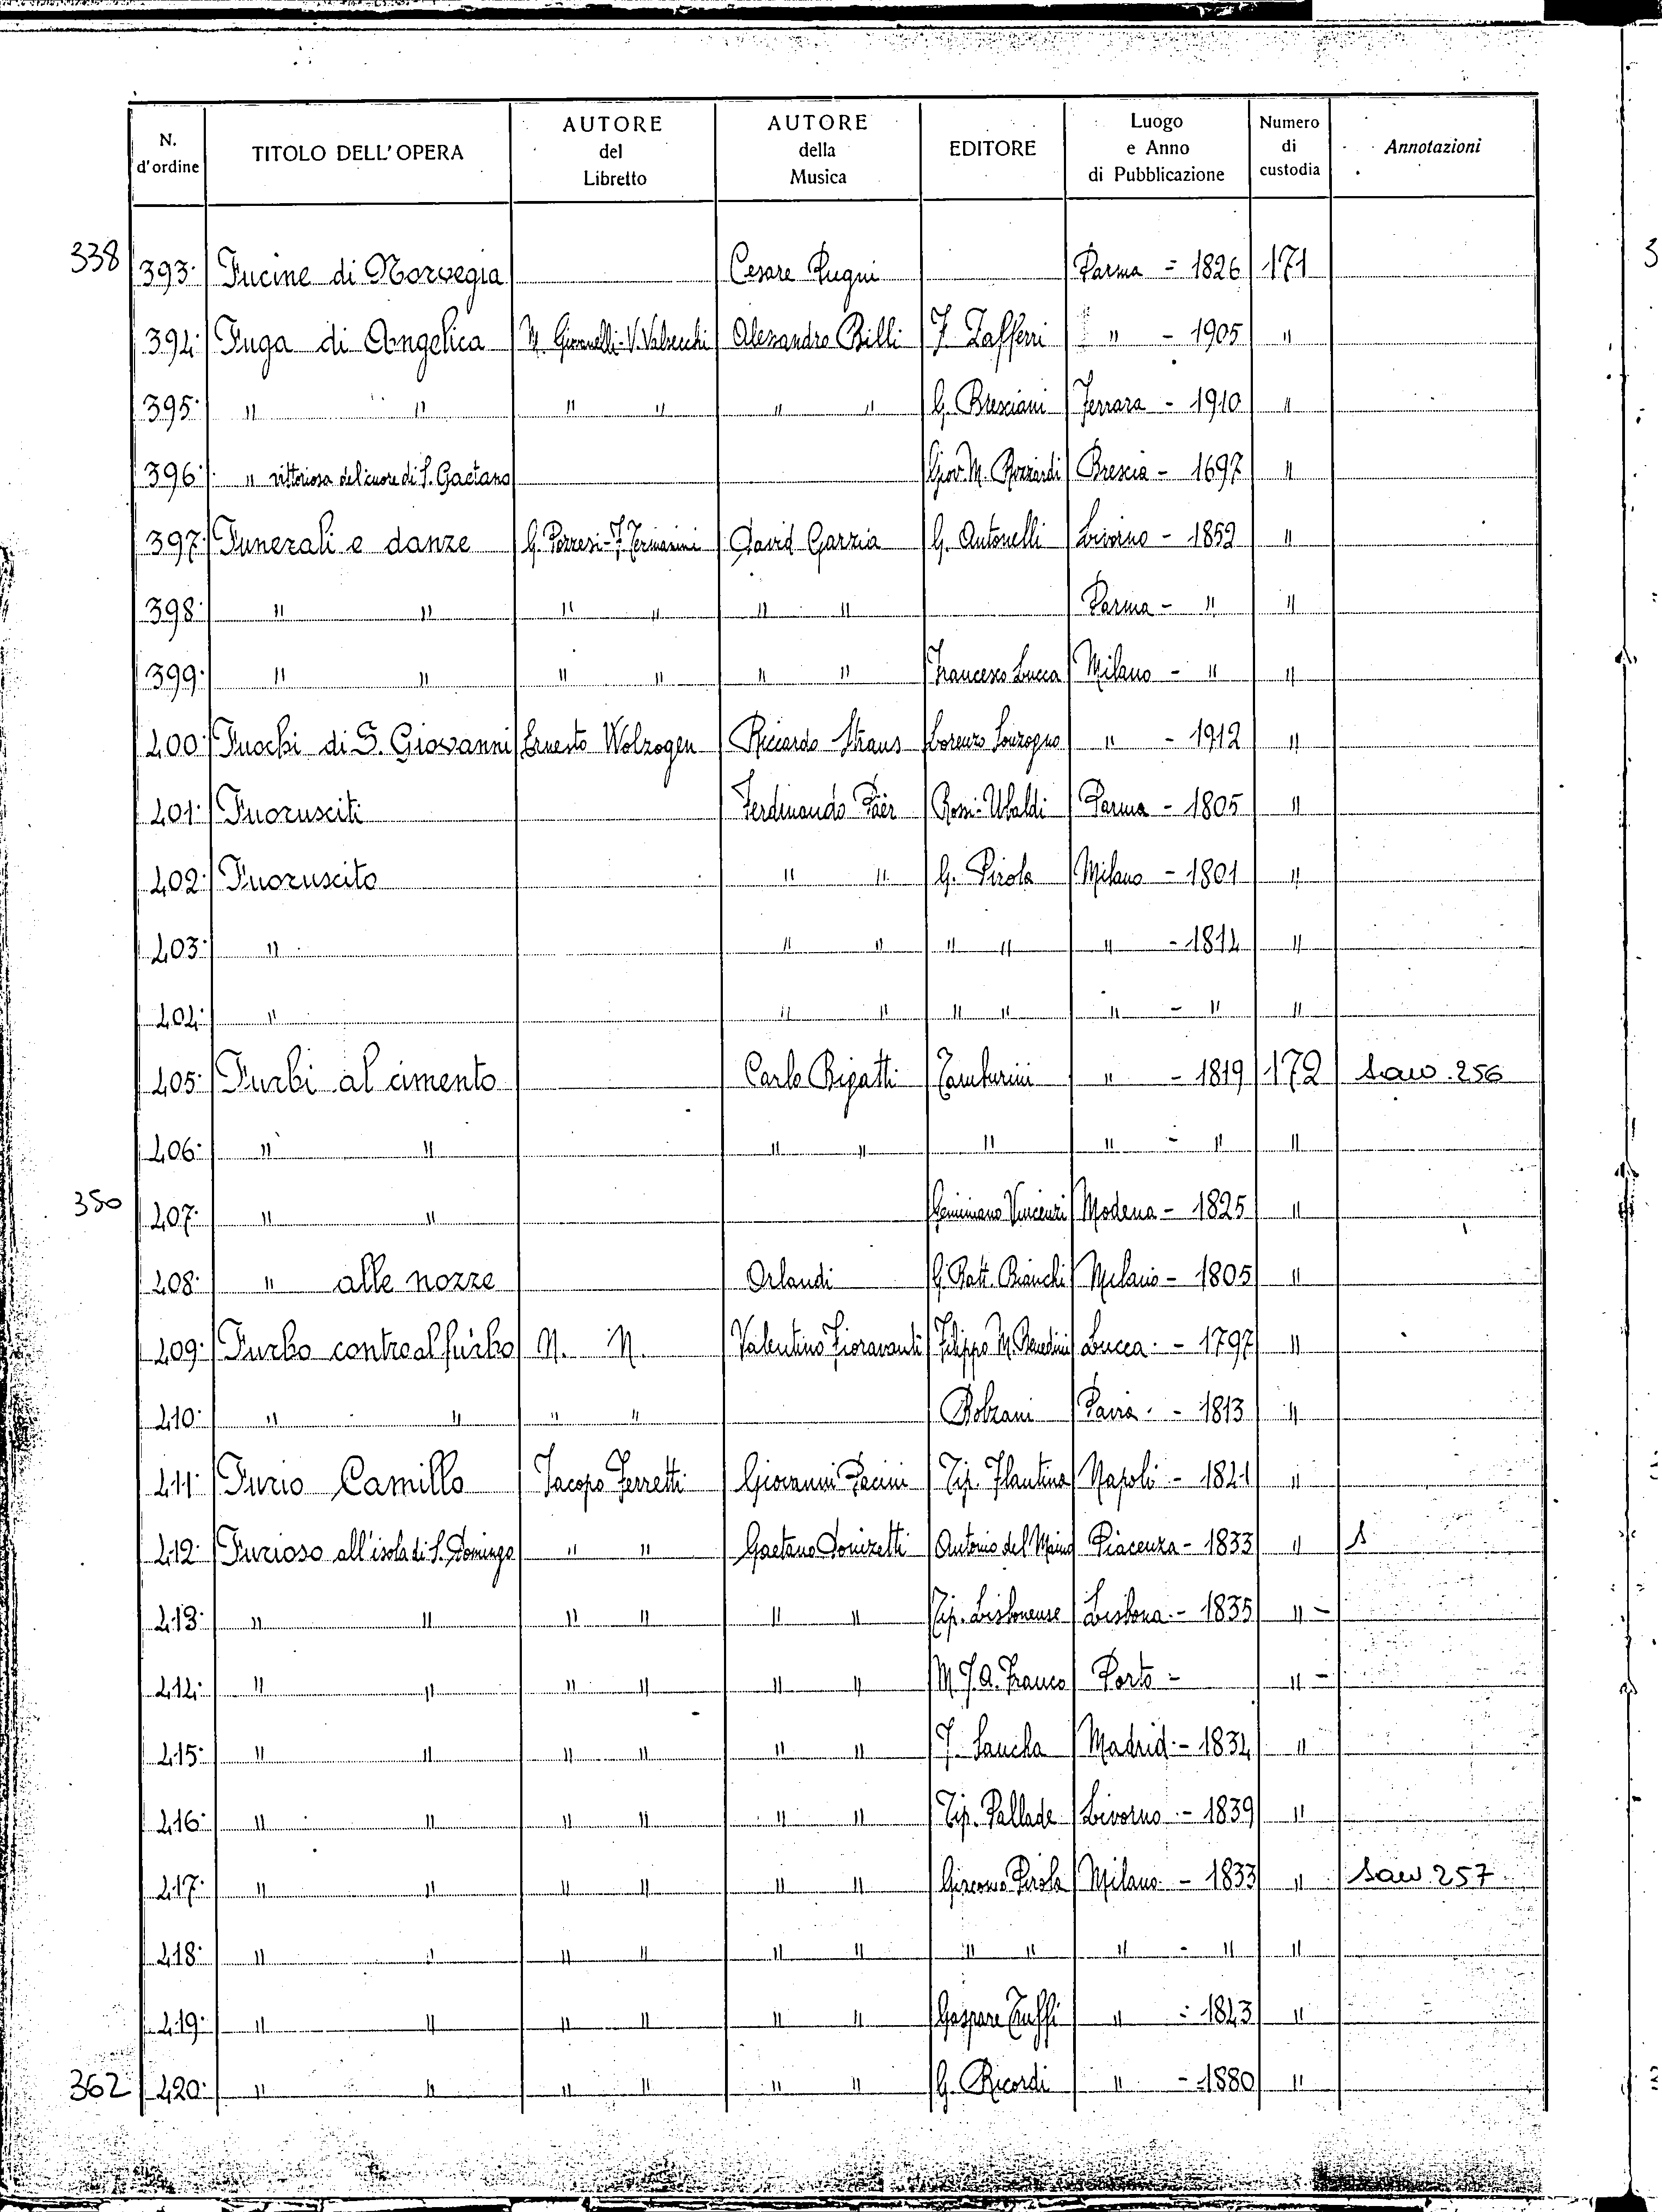 N. d'ordine TITOLO DELL'OPERA AUTORE del Libretto AUTORE della Musica EDITORE Luogo e Anno di Pubblicazione Numero di custodia Annotazioni
338 393· Fucine di Norvegia Cesare Pugni Parma - 1826 171
394· Fuga di Angelica M. Giovanelli-V. Valsecchi Alessandro Billi F. Zafferri " - 1905 "
395· " " " " " " G. Bresciani Ferrara - 1910 "
396· " vittoriosa del cuore di S. Gaetano Giov. M. Rizzardi Brescia - 1697 "
397· Funerali e danze G. Perresi-F. Termanini David Garzia G. Antonelli Livorno - 1852 "
398· " " " " " " Parma - " "
399· " " " " " " Francesco Lucca Milano - " "
400· Fuochi di S. Giovanni Ernesto Wolzogen Riccardo Straus Lorenzo Sonzogno " - 1912 "
401· Fuorusciti Ferdinando Päer Rossi-Ubaldi Parma - 1805 "
402· Fuoruscito " " G. Pirola Milano - 1801 "
403· " " " " " " - 1814 "
404· " " " " " " - " "
405· Furbi al cimento Carlo Bigatti Tamburini " - 1819 172 saw. 256
406· " " " " " " - " "
350 407· " " Geminiano Vincenzi Modena - 1825 "
408· " alle nozze Orlandi G. Batt. Bianchi Milano - 1805 "
409· Furbo contro al furbo N. N. Valentino Fioravanti Filippo M. Benedini Lucca - 1797 "
410· " " " " Bolzani Pavia - 1813 "
411· Furio Camillo Jacopo Ferretti Giovanni Pacini Tip. Flautina Napoli - 1841 "
412· Furioso all'isola di S. Domingo " " Gaetano Donizetti Antonio del Maino Piacenza - 1833 " S
413· " " " " " " Tip. Lisbonense Lisbona - 1835 " -
414· " " " " " " M. J. A. Franco Porto - " -
415· " " " " " " J. Sancha Madrid - 1834 "
416· " " " " " " Tip. Pallade Livorno - 1839 "
417· " " " " " " Giacomo Pirola Milano - 1833 " saw 257
418· " " " " " " " " " - " "
419· " " " " " " Gaspare Truffi " - 1843 "
362 420· " " " " " " G. Ricordi " - 1880 "